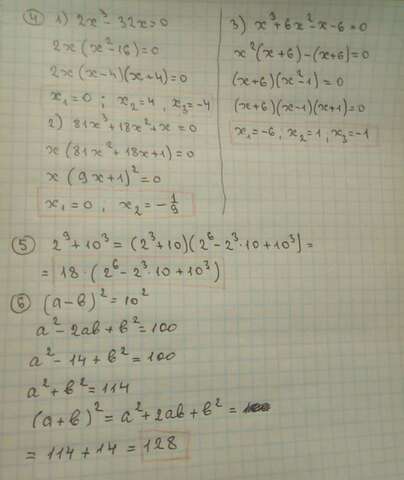 ④ 1) 2x³ - 32x = 0
2x (x² - 16) = 0
2x (x - 4)(x + 4) = 0
x₁ = 0 ; x₂ = 4 , x₃ = -4
2) 81x³ + 18x² + x = 0
x (81x² + 18x + 1) = 0
x (9x + 1)² = 0
x₁ = 0 , x₂ = -1/9
3) x³ + 6x² - x - 6 = 0
x² (x + 6) - (x + 6) = 0
(x + 6)(x² - 1) = 0
(x + 6)(x - 1)(x + 1) = 0
x₁ = -6 , x₂ = 1 , x₃ = -1
⑤ 2⁹ + 10³ = (2³ + 10)(2⁶ - 2³ · 10 + 10³) =
= 18 · (2⁶ - 2³ · 10 + 10³)
⑥ (a - b)² = 10²
a² - 2ab + b² = 100
a² - 14 + b² = 100
a² + b² = 114
(a + b)² = a² + 2ab + b² =
= 114 + 14 = 128